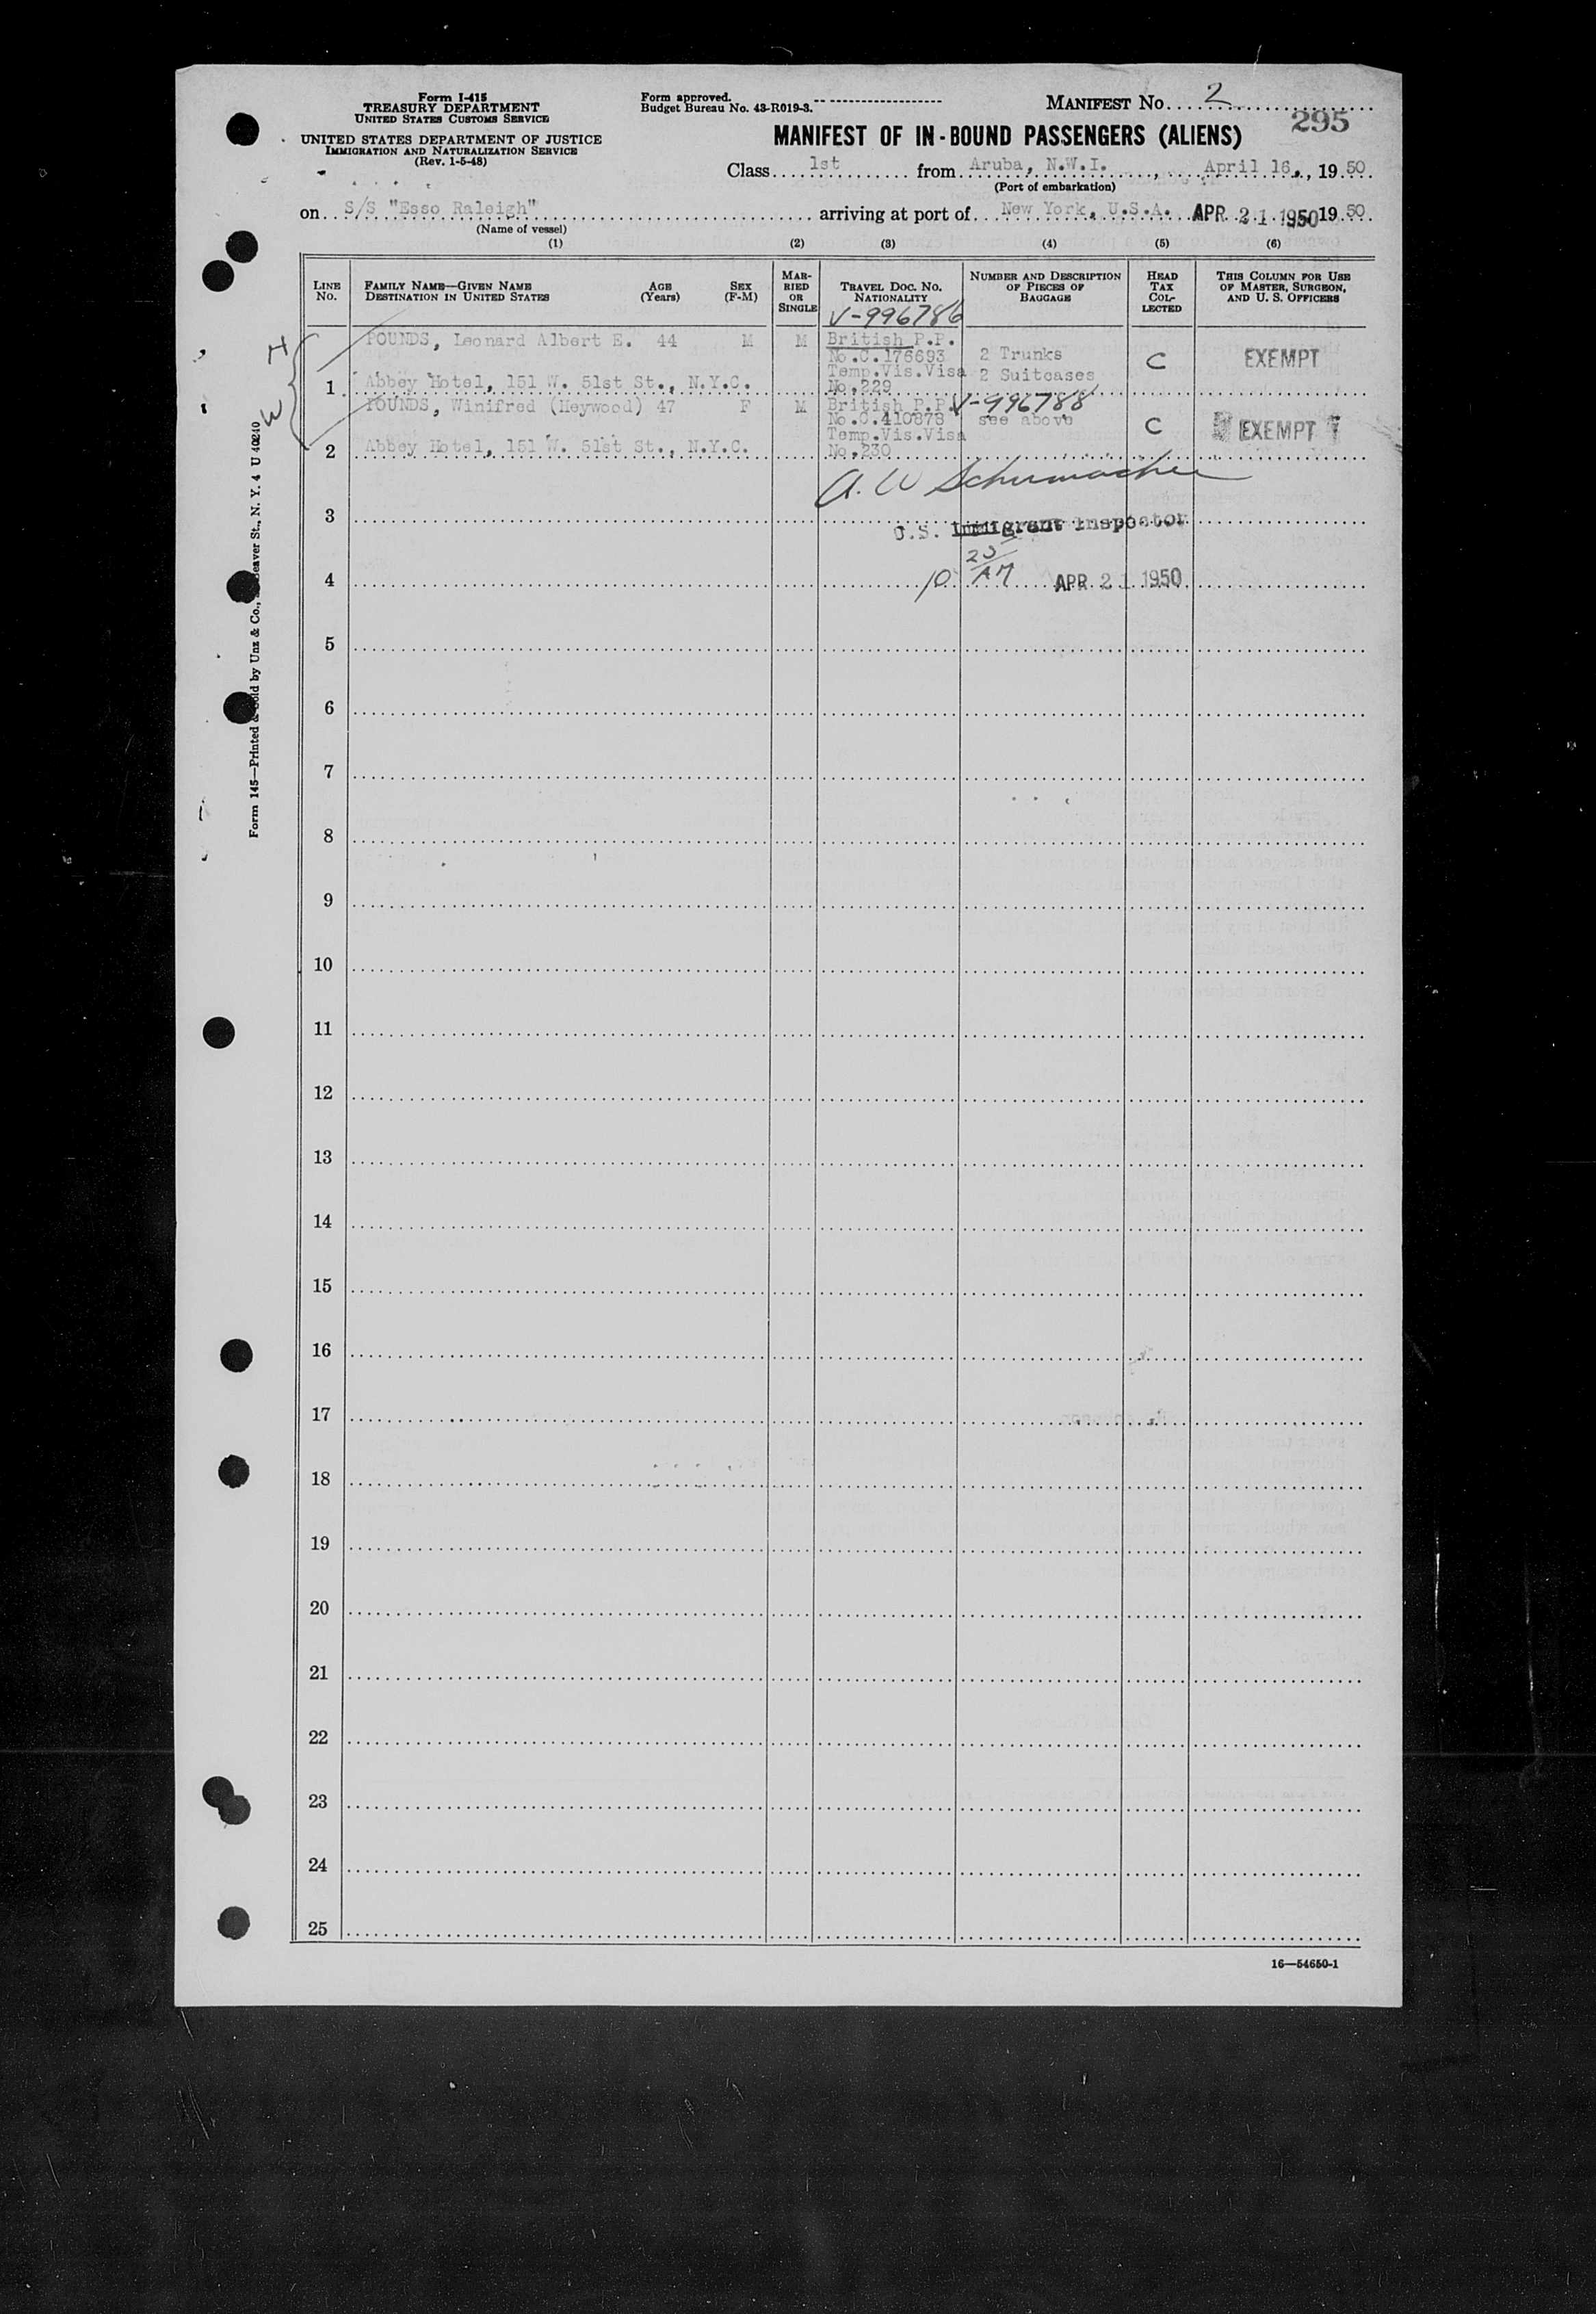 Form I-415
TREASURY DEPARTMENT
UNITED STATES CUSTOMS SERVICE
UNITED STATES DEPARTMENT OF JUSTICE
IMMIGRATION AND NATURALIZATION SERVICE
(Rev. 1-5-48)
Form approved.
Budget Bureau No. 43-R019-3.
MANIFEST No. 2
295
MANIFEST OF IN-BOUND PASSENGERS (ALIENS)
Class 1st from Aruba, N.W.I., April 16, 1950
(Port of embarkation)
on S/S "Esso Raleigh" arriving at port of New York, U.S.A. APR 21 1950 1950
(Name of vessel)
(1) (2) (3) (4) (5) (6)
LINE No.
FAMILY NAME—GIVEN NAME
DESTINATION IN UNITED STATES
AGE (Years)
SEX (F-M)
MARRIED OR SINGLE
TRAVEL DOC. NO. NATIONALITY
NUMBER AND DESCRIPTION OF PIECES OF BAGGAGE
HEAD TAX COLLECTED
THIS COLUMN FOR USE OF MASTER, SURGEON, AND U. S. OFFICERS
V-996786
H
W
POUNDS, Leonard Albert E. 44 M M British P.P.
No.C.176693 2 Trunks C EXEMPT
Temp.Vis.Visa 2 Suitcases
1 Abbey Hotel, 151 W. 51st St., N.Y.C. No.229
POUNDS, Winifred (Heywood) 47 F M British P.P. V-996788
No.C.410878 see above C EXEMPT
Temp.Vis.Visa
2 Abbey Hotel, 151 W. 51st St., N.Y.C. No.230
A. W Schumacher
3 U.S. Immigrant Inspector
4 10 25 AM APR 21 1950
5
6
7
8
9
10
11
12
13
14
15
16
17
18
19
20
21
22
23
24
25
16—54650-1
Form 145—Printed & Sold by Unz & Co., Beaver St., N. Y. 4 U 40240